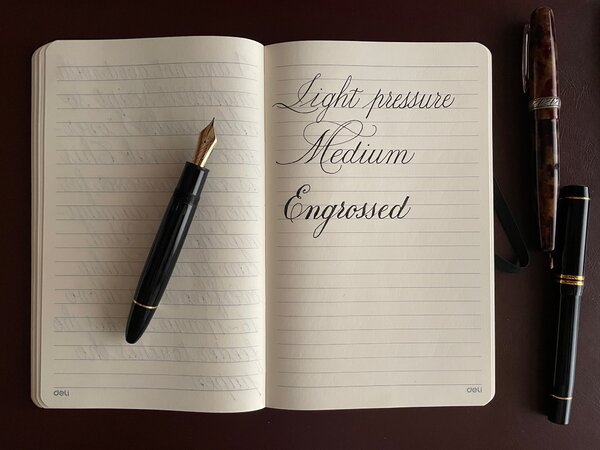 Light pressure
Medium
Engrossed
deli
deli